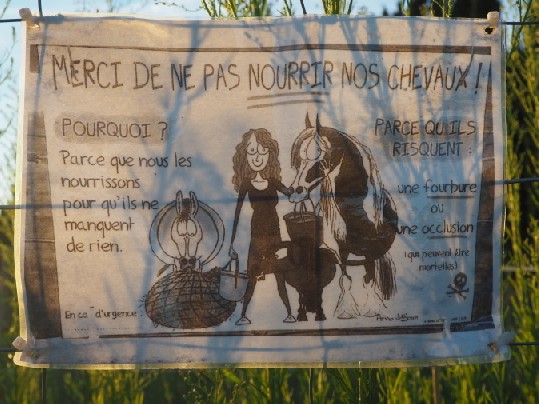 MERCI DE NE PAS NOURRIR NOS CHEVAUX !
POURQUOI ?
Parce que nous les
nourrissons
pour qu'ils ne
manquent
de rien.
PARCE QU'ILS
RISQUENT :
une fourbure
ou
une occlusion
(qui peuvent être
mortelles)
En cas d'urgence